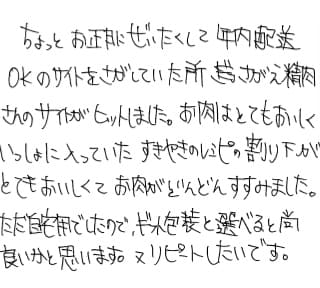 ちょっとお正月にぜいたくして年内配送
OKのサイトをさがしていた所 ぎゅうさがえ精肉
さんのサイトがヒットしました。お肉はとてもおいしく
いっしょに入っていたすきやきのレシピの割り下が
とてもおいしくてお肉がどんどんすすみました。
ただ自宅用でしたので、ギフト包装と選べると尚
良いかと思います。又リピートしたいです。